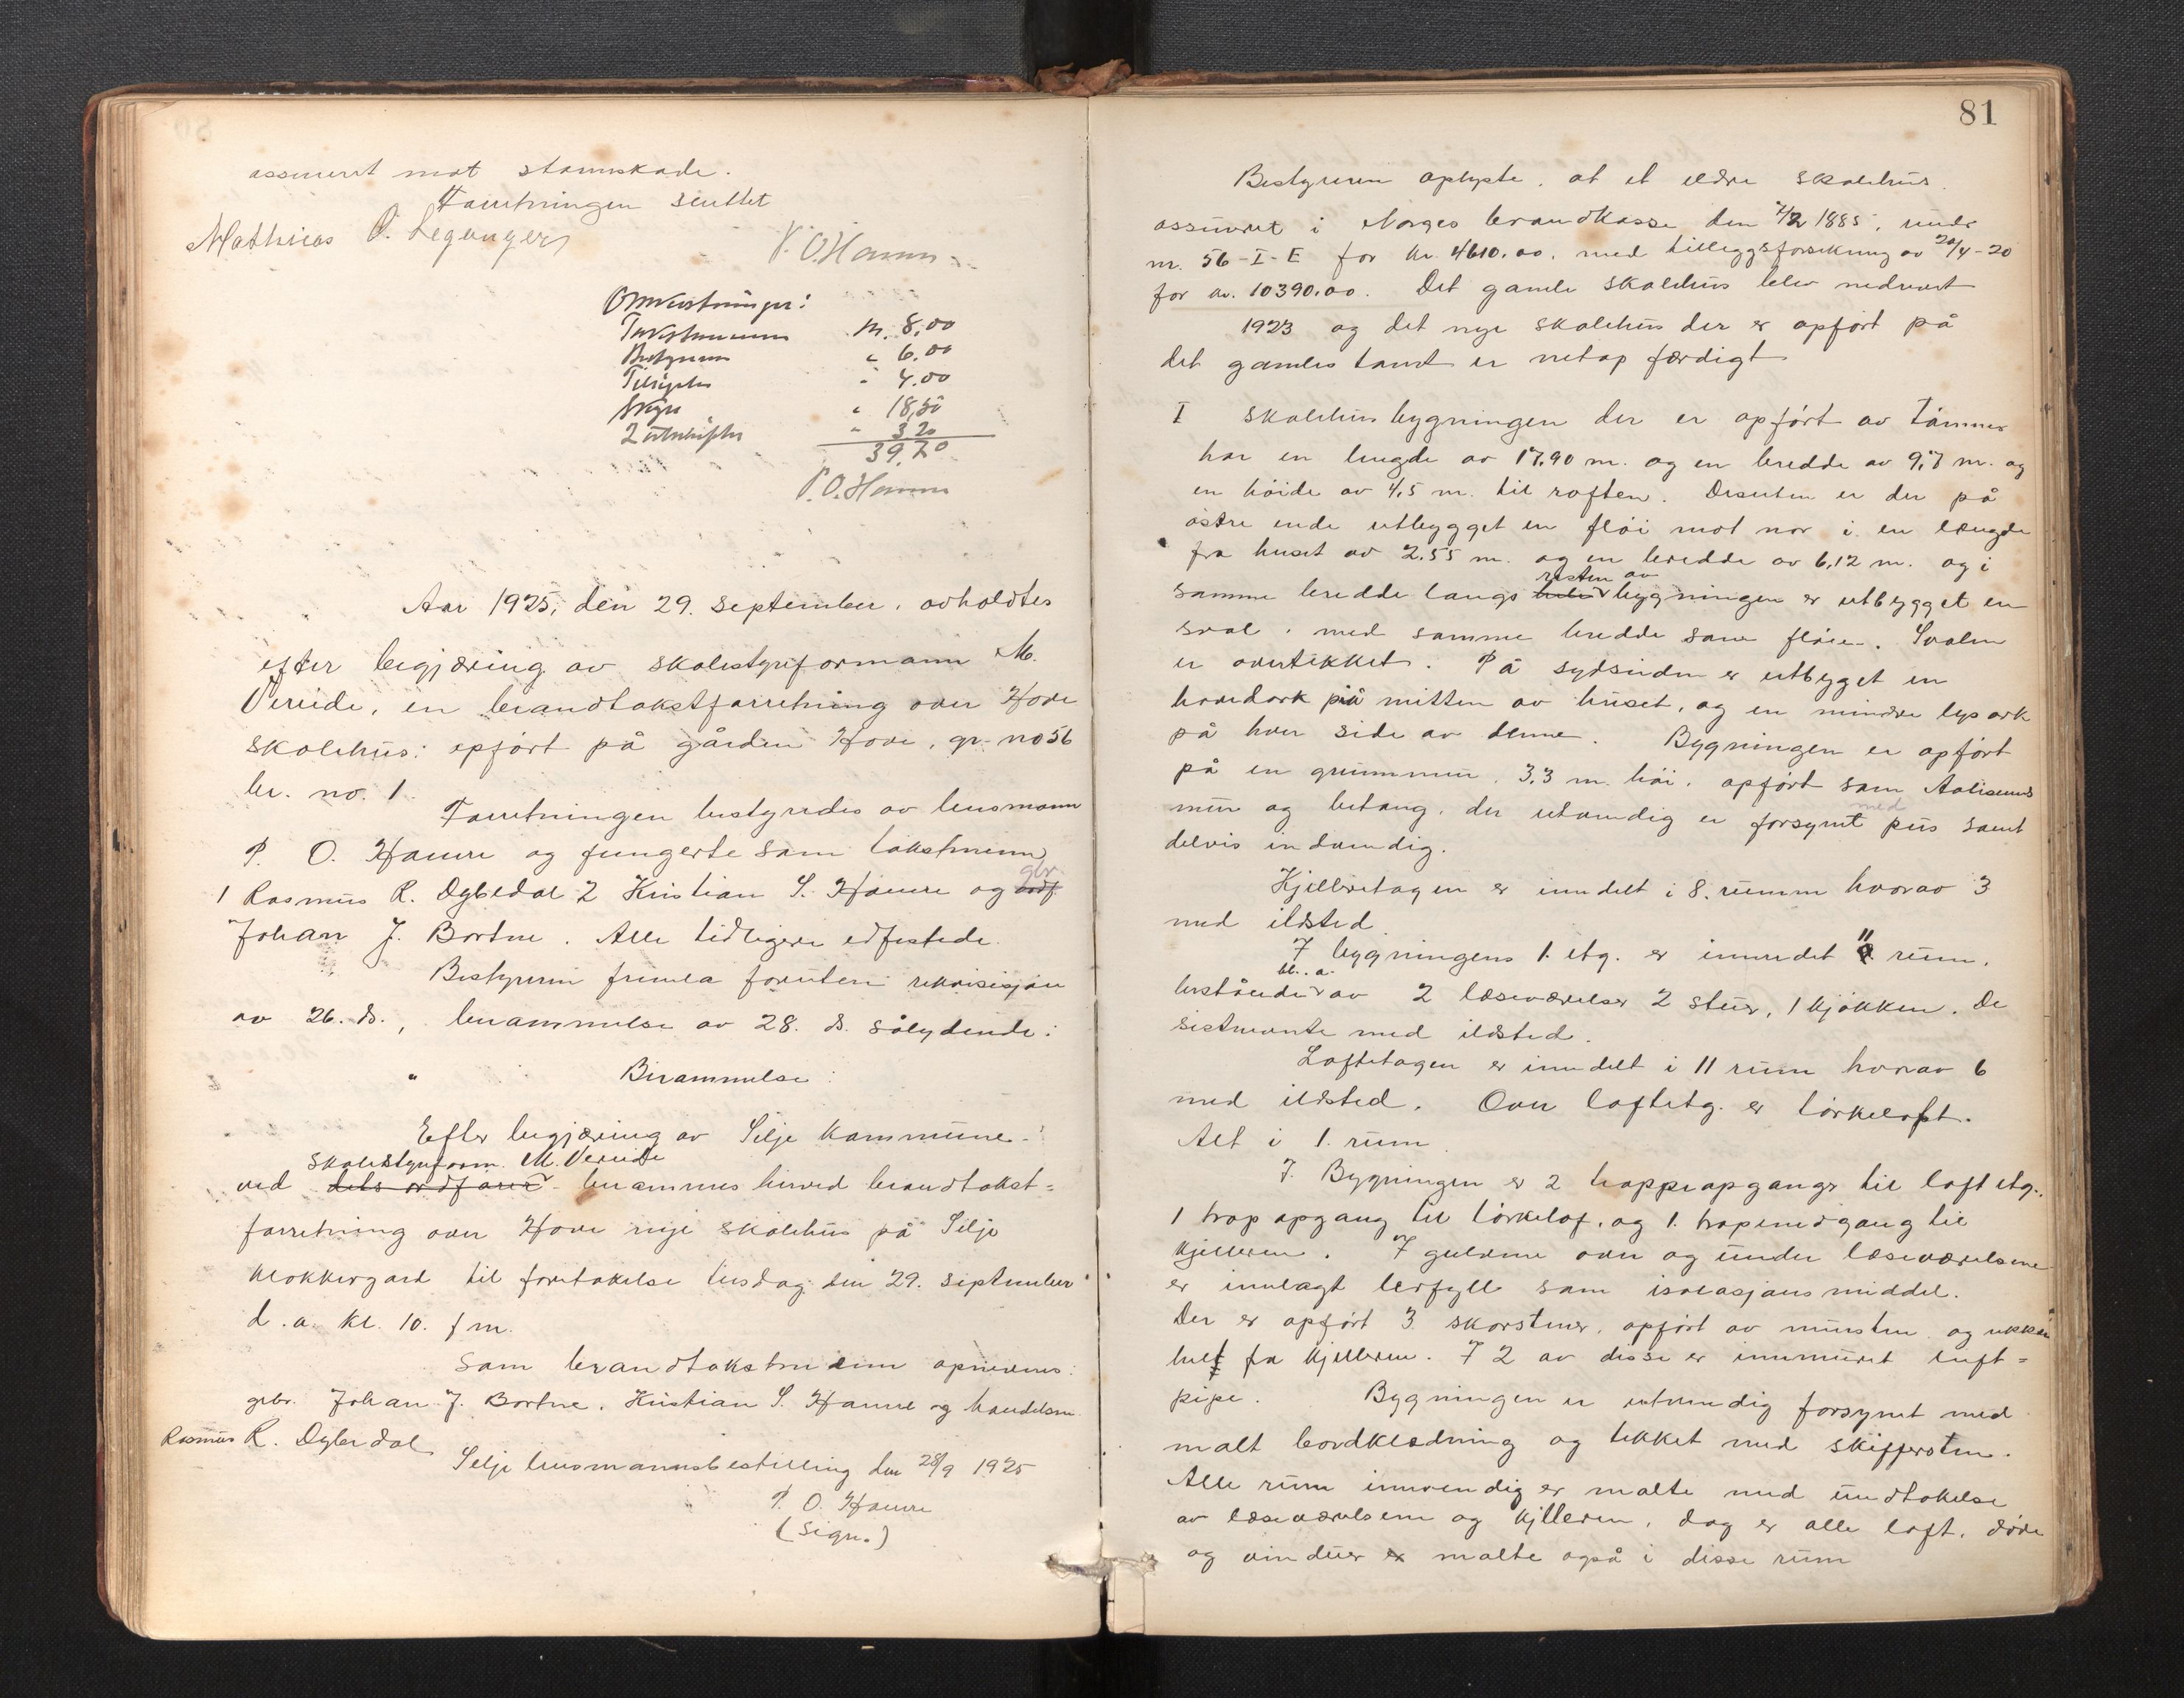 assureret mot stormskade.
Forretningen sluttet
Mathias O. Leganger
P. O. Hamre
Omkostninger:
Takstmenn kr. 8,00
Bestyreren " 6.00
Tilsigelse " 4.00
Skyss " 18,50
2 utskrifter " 3 20
39,70
P. O. Hamre
Aar 1925, den 29. september, avholdtes
efter begjæring av skolestyreformann M.
Vereide, en brandtakstforretning over Hove
skolehus: opført på gården Hove, gr. no 56
br. no. 1
Forretningen bestyredes av lensmann
P. O. Hamre og fungerte som takstmenn
1 Rasmus R. Dybedal 2 Kristian S. Hamre og gbr.
Johan J. Bortne. Alle tidligere edfestede.
Bestyreren fremla foruten rekvisisjon
av 26. ds., berammelse av 28. ds. sålydende:
" Berammelse:
Efter begjæring av Selje kommune
skolestyreform. M. Vereide
ved dets ordfører berammes herved brandtakst=
forretning over Hove nye skolehus på Selje
klokkergard til foretakelse tirsdag den 29. september
d. a. kl. 10. f m.
Som brandtakstmenn opnevnes:
grbr. Johan J. Bortne, Kristian S. Hamre og handelsm.
Rasmus R. Dybedal
Selje lensmannsbestilling den 28/9 1925
P. O. Hamre
(sign.)
81
Bestyreren oplyste, at et eldre skolehus
assureret i Norges brandkasse den 2/2 1885, under
nr. 56 - I - E for kr. 4610.00. med tilleggsforsikring av 20/4-20
for kr. 10390.00. Det gamle skolehus blev nedrevet
1923 og det nye skolehus der er opført på
det gamles tomt er netop færdigt
I skolehusbygningen der er opført av tømmer
har en lengde av 17.90 m. og en bredde av 9,7 m. og
en høide av 4,5 m. til roften. Desuten er der på
østre ende utbygget en fløi mot nor i en længde
fra huset av 2.55 m. og en bredde av 6,12 m. og i
resten av
samme bredde langs hele bygningen er utbygget en
sval, med samme bredde som fløien. Svalen
er overtekket. På sydsiden er utbygget en
hovedark på mitten av huset, og en mindre lysark
på hver side av denne. Bygningen er opført
på en grunnmur, 3.3 m. høi, opført som
med
mur og betong, der utvendig er forsynt pus samt
delvis innvendig.
Kjelleretagen er inndelt i 8. rumm hvorav 3
med ildsted
I bygningens 1. etg. er innredet 11 rum,
bl. a.
bestående av 2 læseværelser 2 stuer, 1 kjøkken. De
sistnevnte med ildsted.
Loftetagen er inndelt i 11 rum hvorav 6
med ildsted. Over loftetg. er tørkeloft.
Alt i 1. rum
I. Bygningen er 2 trappeopganger til loft etg.,
1 trap opgang til tørkelof, og 1. trapenedgang til
kjelleren. I gulvene over og under læseværelsene
er innlagt lerfyll som isolasjonsmiddel.
Der er opført 3 skorstener, opført av mursten og rekker
helt fra kjelleren. I 2 av disse er innmuret luft=
pipe. Bygningen er utvendig forsynet med
malt bordklædning og tekket med skiffersten.
Alle rum innvendig er malte med undtakelse
av læseværelsene og kjelleren, dog er alle loft, døre
og vinduer er malte også i disse rum